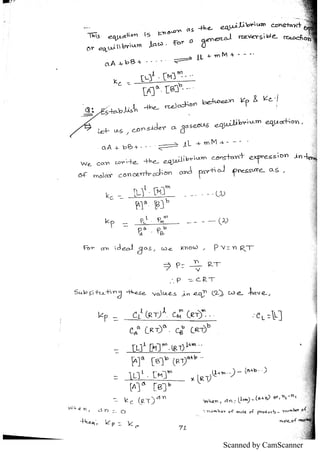 This equation is known as the equilibrium constant
or equilibrium law. For a general reversible reaction
aA + bB + - - - - ⇌ lL + mM + - - - -
kc = [L]^l . [M]^m ... / [A]^a . [B]^b ...
Q: Establish the relation between Kp & Kc !
→ Let us, consider a gaseous equilibrium equation.
aA + bB + ... ⇌ lL + mM + - - - -
We can write the equilibrium constant expression in
of molar concentration and partial pressure as.
kc = [L]^l . [M]^m / [A]^a . [B]^b - - - - - (1)
kp = P_L^l P_M^m / P_A^a . P_B^b - - - - (2)
For an ideal gas, we know, PV = nRT
⇒ P = n/V RT
∴ P = CRT
Substituting these values in eqn (2) we have,
kp = C_L^l (RT)^l C_M^m (RT)^m... / C_A^a (RT)^a . C_B^b (RT)^b ∵ C_L = [L]
= [L]^l [M]^m . (RT)^l+m... / [A]^a [B]^b (RT)^a+b...
= [L]^l . [M]^m / [A]^a [B]^b × (RT)^(l+m...) - (a+b...)
= kc (RT)^Δn When, Δn = (l+m) - (a+b) or, n2-n1
When, Δn = 0 = number of mole of products - number of
then, kp = kc mole of
71
Scanned by CamScanner